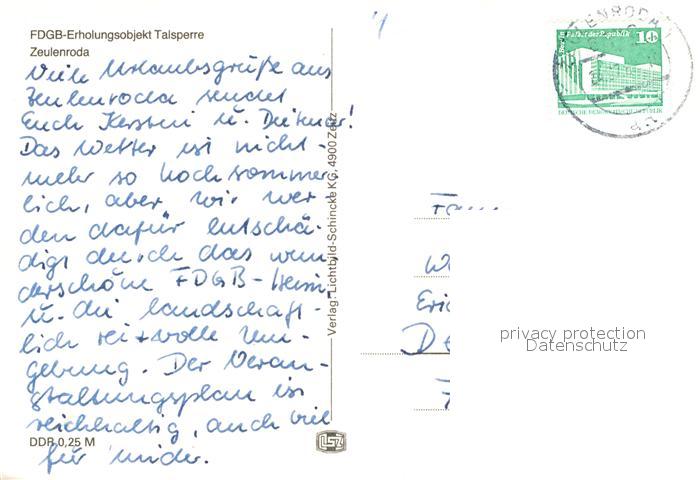 FDGB-Erholungsobjekt Talsperre
Zeulenroda
Viele Urlaubsgrüße aus
Zeulenroda sendet
Euch Kerstin u. Dietmar!
Das Wetter ist nicht-
mehr so hochsommer-
lich, aber wir wer-
den dafür entschä-
digt durch das wun-
derschöne FDGB-Heim
u. die landschaft-
lich reizvolle Um-
gebung. Der Veran-
staltungsplan ist
reichhaltig, auch viel
für Kinder.
DDR 0,25 M
Verlag: Lichtbild-Schincke KG, 4900 Zeitz
LSZ
Berlin, Palast der Republik
10
DEUTSCHE DEMOKRATISCHE REPUBLIK
ZEULENRODA
Fam
Eric
privacy protection
Datenschutz